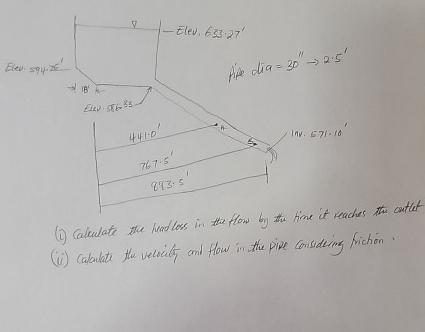 Elev. 633.27'
Pipe dia = 30" → 2.5'
18' A
441.0'
A
Inv. 571.10'
767.5'
883.5'
(i) Calculate the head loss in the flow by the time it reaches the outlet
(ii) Calculate the velocity and flow in the pipe considering friction.